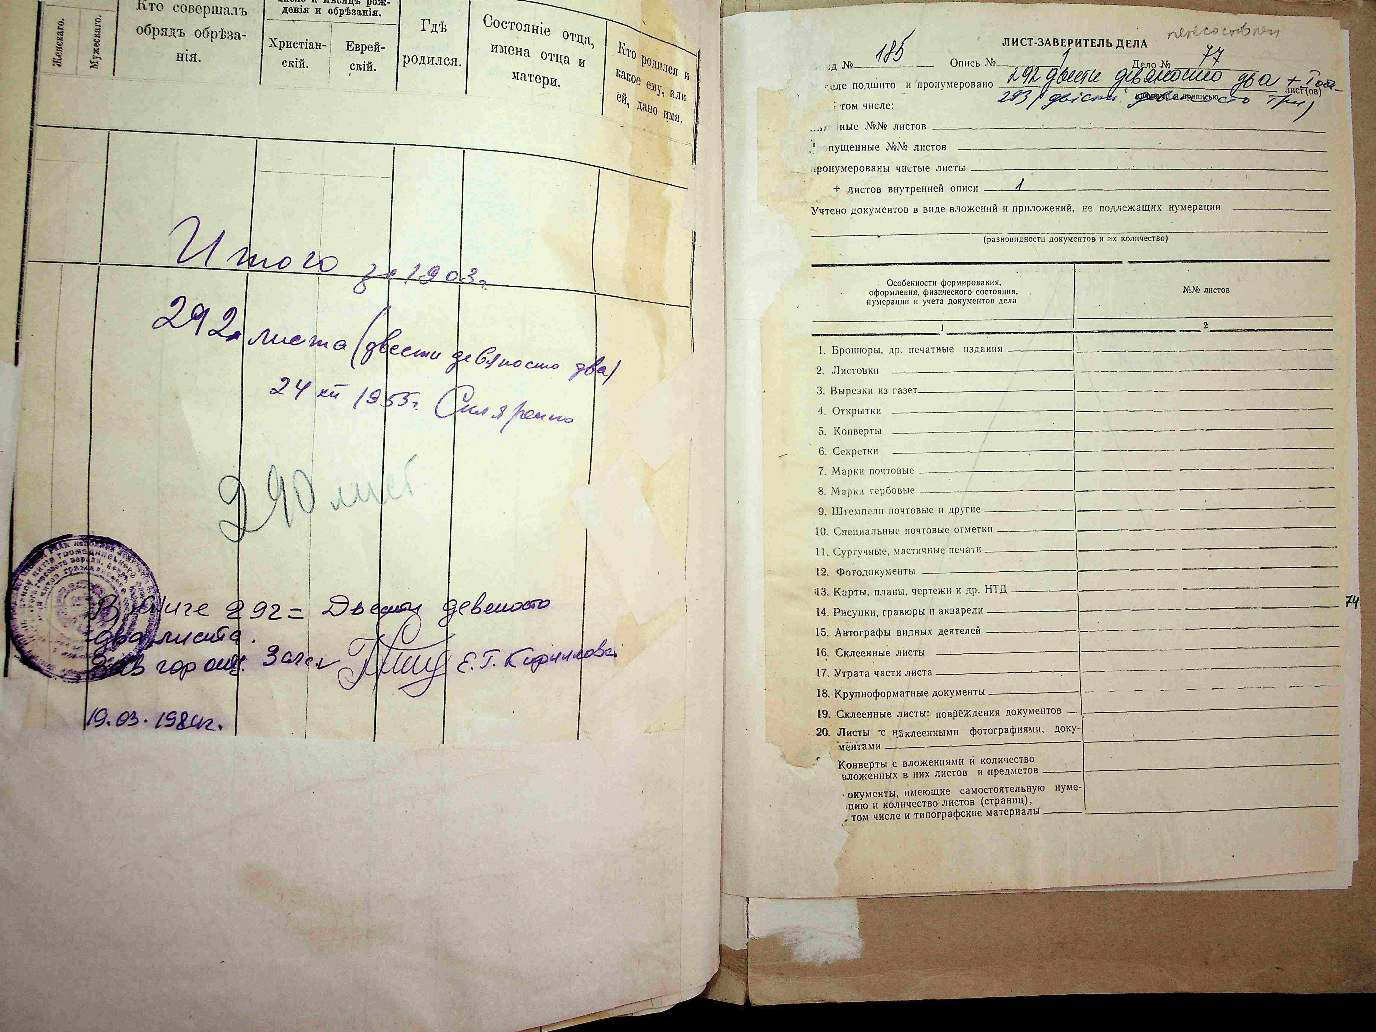 Женскаго.
Мужескаго.
Кто совершалъ
обрядъ обрѣза-
нія.
Число и мѣсяцъ рож-
денія и обрѣзанія.
Христіан-
скій.
Еврей-
скій.
Гдѣ
родился.
Состояніе отца,
имена отца и
матери.
Кто родился и
какое ему, или
ей, дано имя.
Итого за 1903г.
292 листа (двести девяносто два)
24 XII 1953г. Скляренко
290 лист
В книге 292 = Двести девяносто
два листа.
Зав гор
Е.Г. Кириллова
19.03.1981г.
ЛИСТ-ЗАВЕРИТЕЛЬ ДЕЛА
№ 185 Опись № 1 Дело № 77
деле подшито и пронумеровано 292 двести девяносто два +
листов)
293 (двісті девяносто три)
том числе:
ные №№ листов
пущенные №№ листов
пронумерованы чистые листы
+ листов внутренней описи 1
Учтено документов в виде вложений и приложений, не подлежащих нумерации
(разновидности документов и их количество)
Особенности формирования,
оформления, физического состояния,
нумерации и учета документов дела
№№ листов
1
2
1. Брошюры, др. печатные издания
2. Листовки
3. Вырезки из газет
4. Открытки
5. Конверты
6. Секретки
7. Марки почтовые
8. Марки гербовые
9. Штемпели почтовые и другие
10. Специальные почтовые отметки
11. Сургучные, мастичные печати
12. Фотодокументы
13. Карты, планы, чертежи и др. НТД
14. Рисунки, гравюры и акварели
74
15. Автографы видных деятелей
16. Склеенные листы
17. Утрата части листа
18. Крупноформатные документы
19. Склеенные листы; повреждения документов
20. Листы с наклеенными фотографиями, доку-
ментами
Конверты с вложениями и количество
вложенных в них листов и предметов
окументы, имеющие самостоятельную нуме-
цию и количество листов (страниц),
том числе и типографские материалы